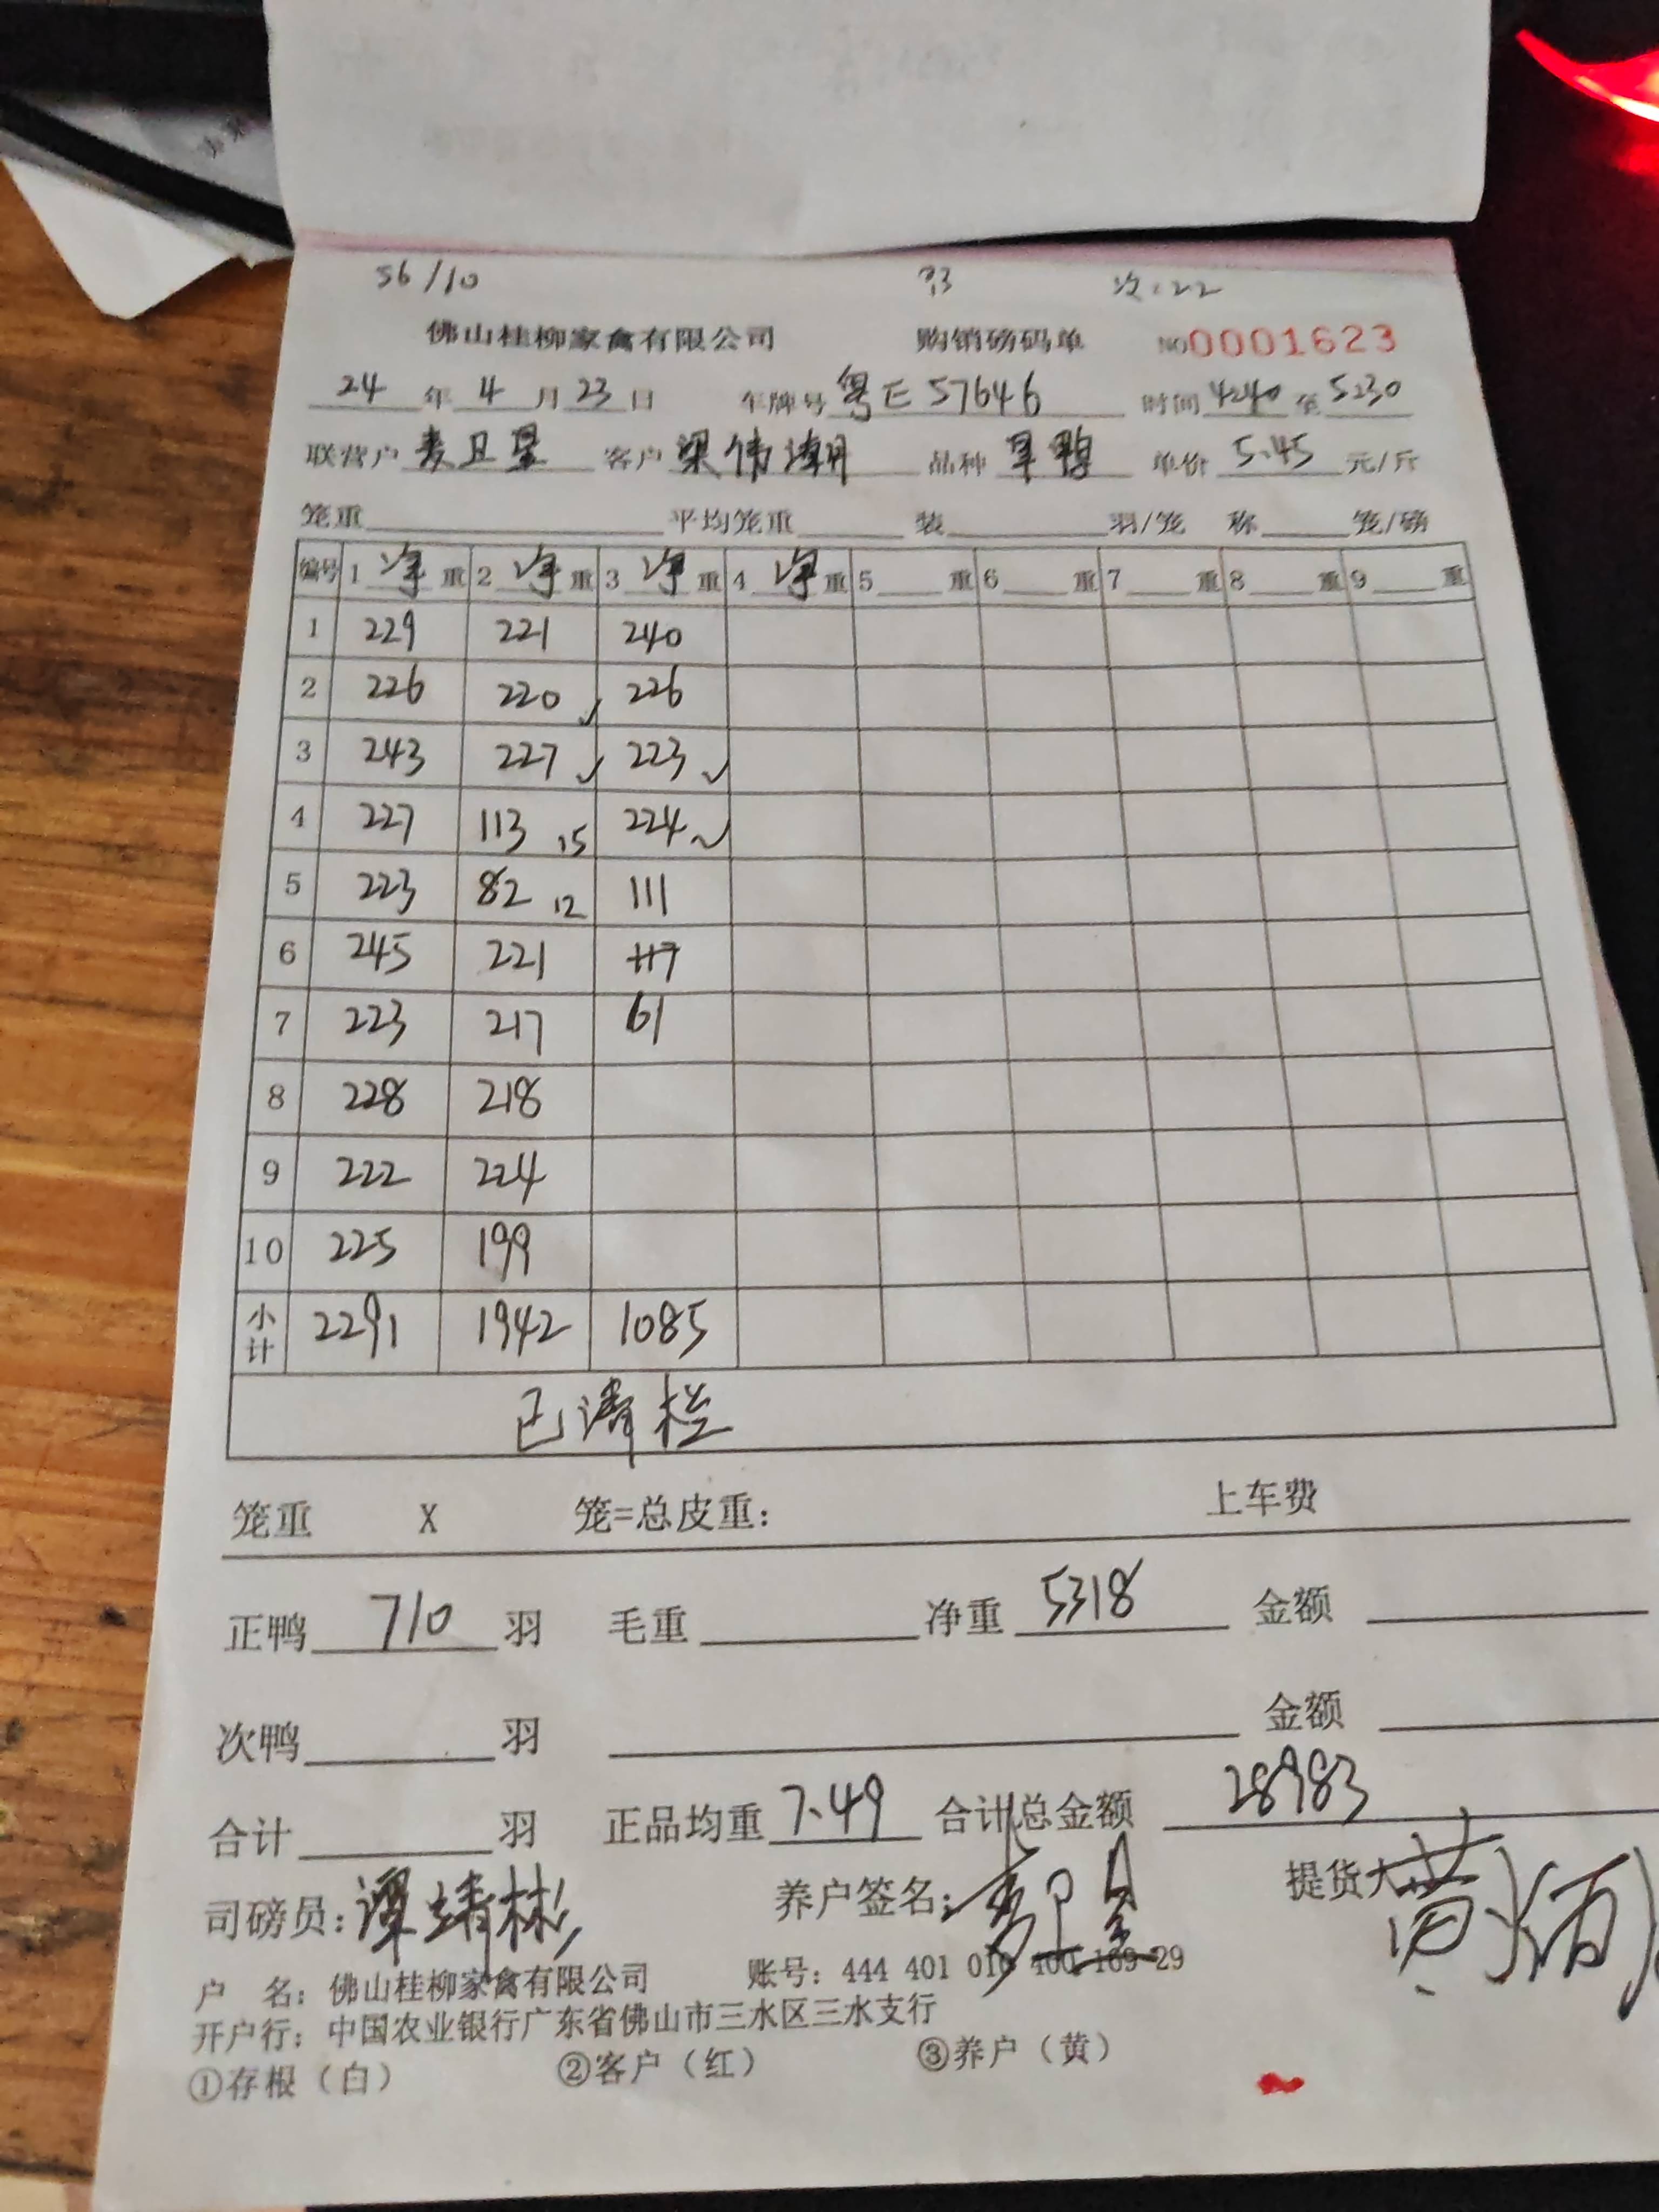 56/10 次:22
佛山桂柳家禽有限公司 购销磅码单 NO0001623
24年4月23日 车牌号粤E57646 时间4:40至5:30
联营户麦卫星 客户梁伟潮 品种旱鸭 单价5.45元/斤
笼重 平均笼重 装 羽/笼 称 笼/磅
编号 1净重 2净重 3净重 4净重 5重 6重 7重 8重 9重
1 229 221 240
2 226 220 226
3 243 227 223
4 227 113 15 224
5 223 82 12 111
6 245 221
7 223 217 61
8 228 218
9 222 224
10 225 199
小计 2291 1942 1085
已清栏
笼重 X 笼=总皮重: 上车费
正鸭710羽 毛重 净重5318 金额
次鸭 羽 金额
合计 羽 正品均重7.49 合计总金额 28983
司磅员:谭靖彬 养户签名:麦卫星 提货人
户 名:佛山桂柳家禽有限公司 账号:444 401 010 400 169 29
开户行:中国农业银行广东省佛山市三水区三水支行
①存根(白) ②客户(红) ③养户(黄)